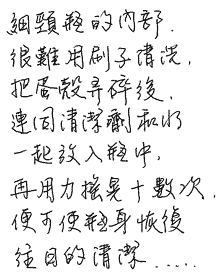 細頸瓶的內部.
很難用刷子清洗,
把蛋殼弄碎後,
連同清潔劑和水
一起放入瓶中,
再用力搖晃十數次,
便可使瓶身恢復
往日的清潔.....